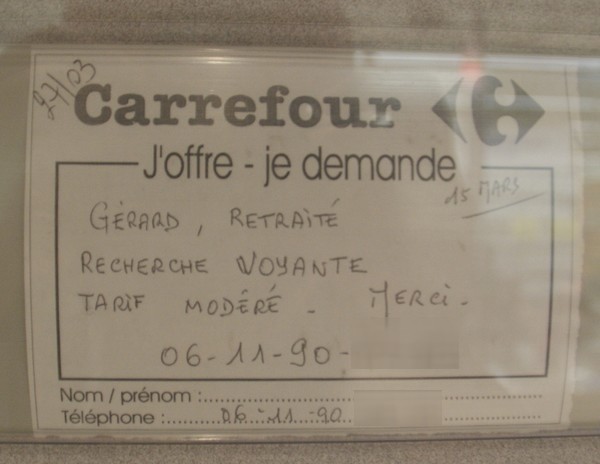 27/03
Carrefour
J'offre - je demande
15 MARS
GÉRARD, RETRAITÉ
RECHERCHE VOYANTE
TARIF MODÉRÉ - MERCI -
06-11-90-
Nom / prénom :
Téléphone : 06-11-90